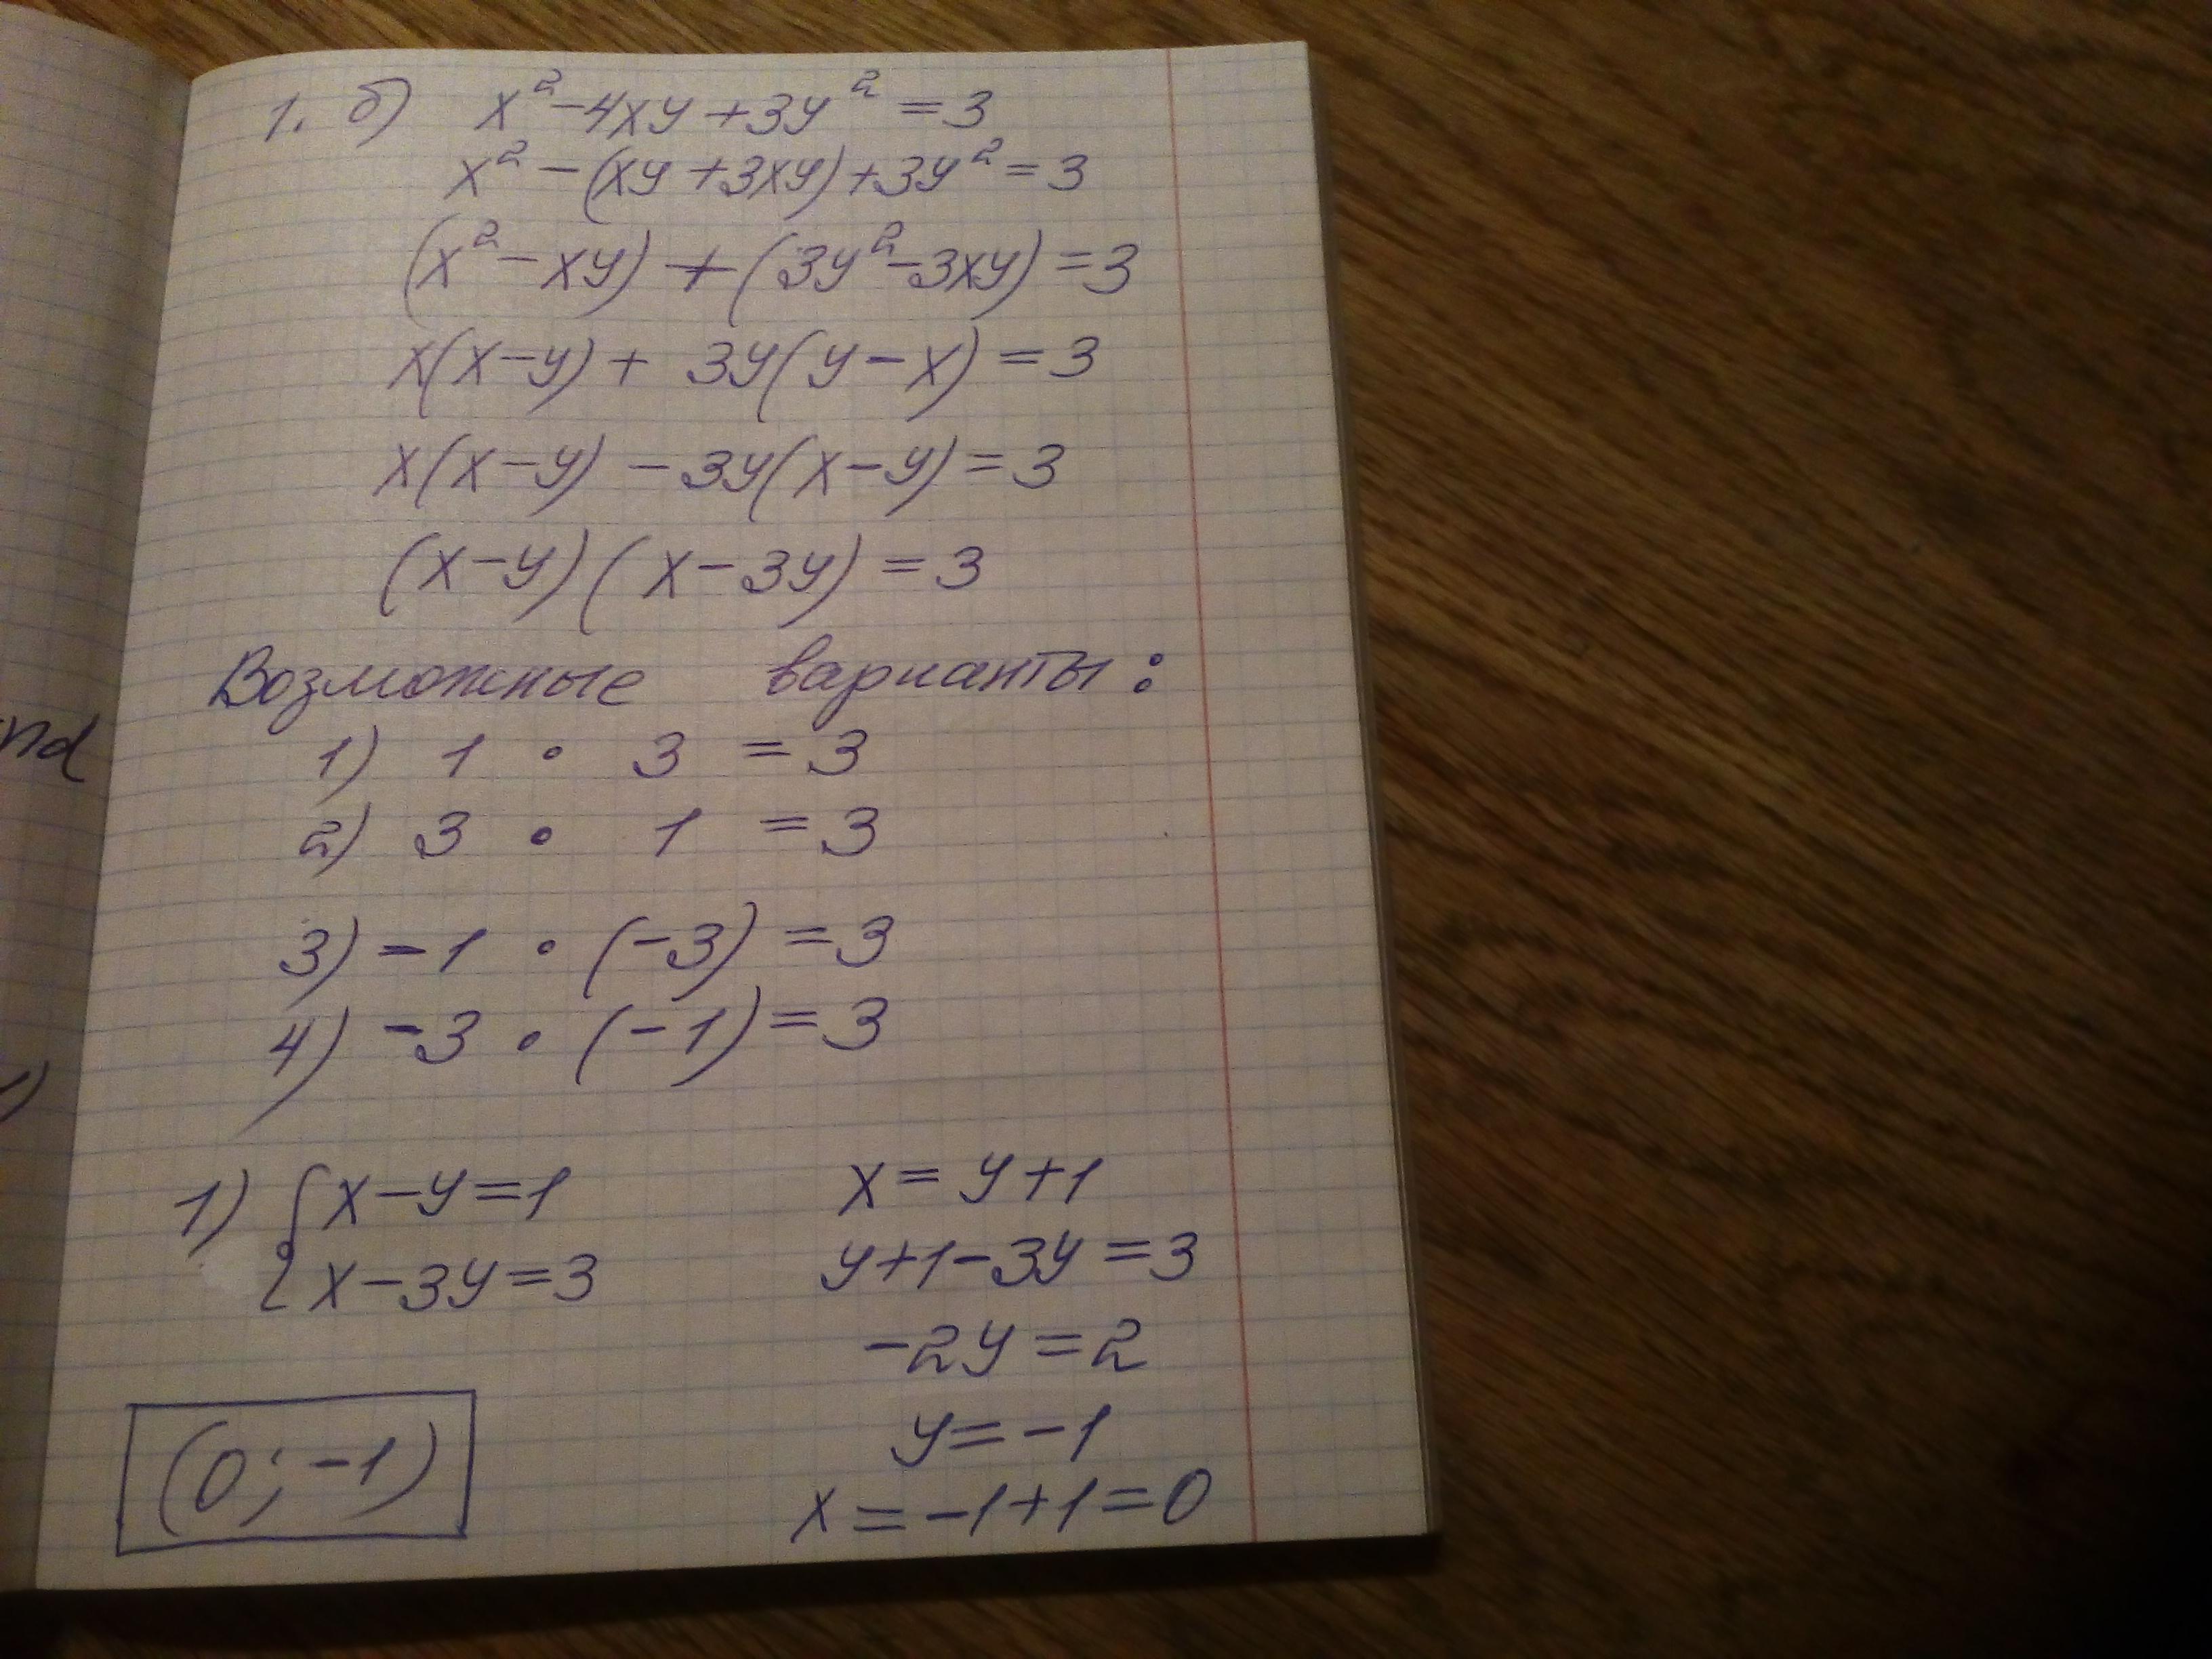 1. б) x² - 4xy + 3y² = 3
x² - (xy + 3xy) + 3y² = 3
(x² - xy) + (3y² - 3xy) = 3
x(x - y) + 3y(y - x) = 3
x(x - y) - 3y(x - y) = 3
(x - y)(x - 3y) = 3
Возможные варианты:
1) 1 · 3 = 3
2) 3 · 1 = 3
nd
3) -1 · (-3) = 3
4) -3 · (-1) = 3
1) { x - y = 1
x - 3y = 3
x = y + 1
y + 1 - 3y = 3
-2y = 2
y = -1
x = -1 + 1 = 0
(0; -1)